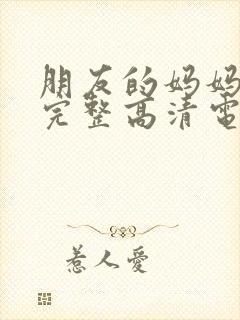 朋友的妈妈
完整高清電
惹人愛